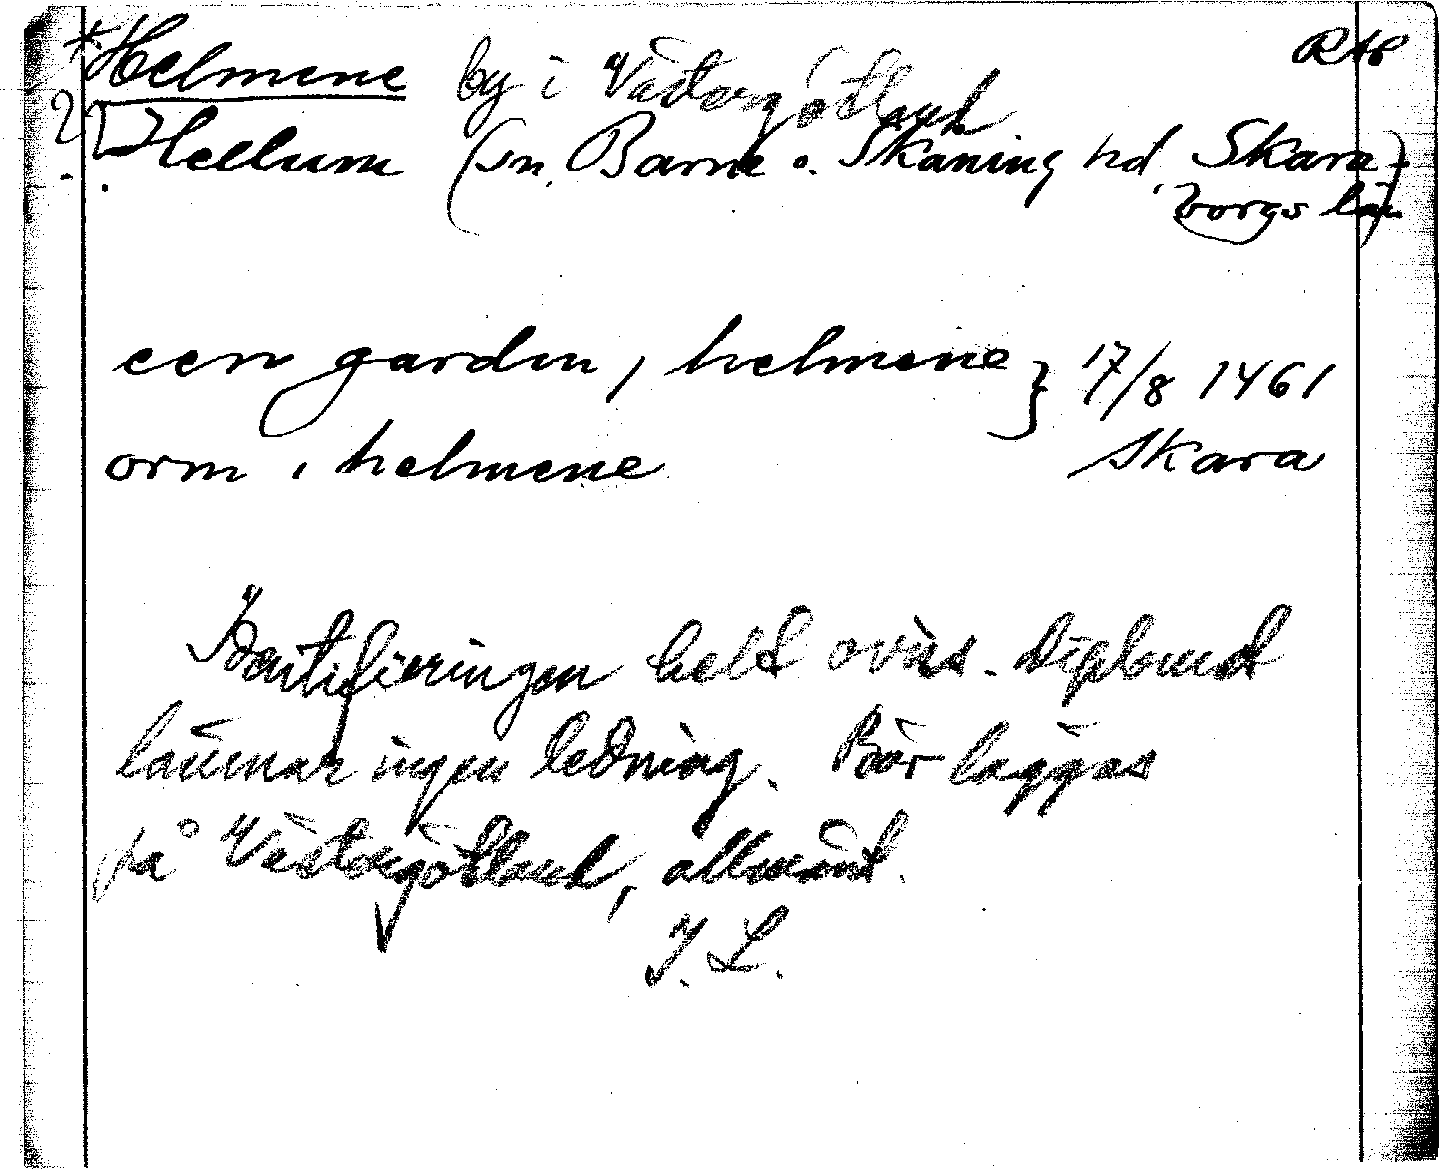 *Helmene by i Västergötland RAP
? Hellum (sn, Barne o. Skåning hd, Skara-
borgs län)
een gardin, helmene } 17/8 1461
orm i helmene Skara
Identifieringen helt oviss. Diplomet
lämnar ingen ledning. Bör läggas
på Västergötland, allmänt.
J. L.